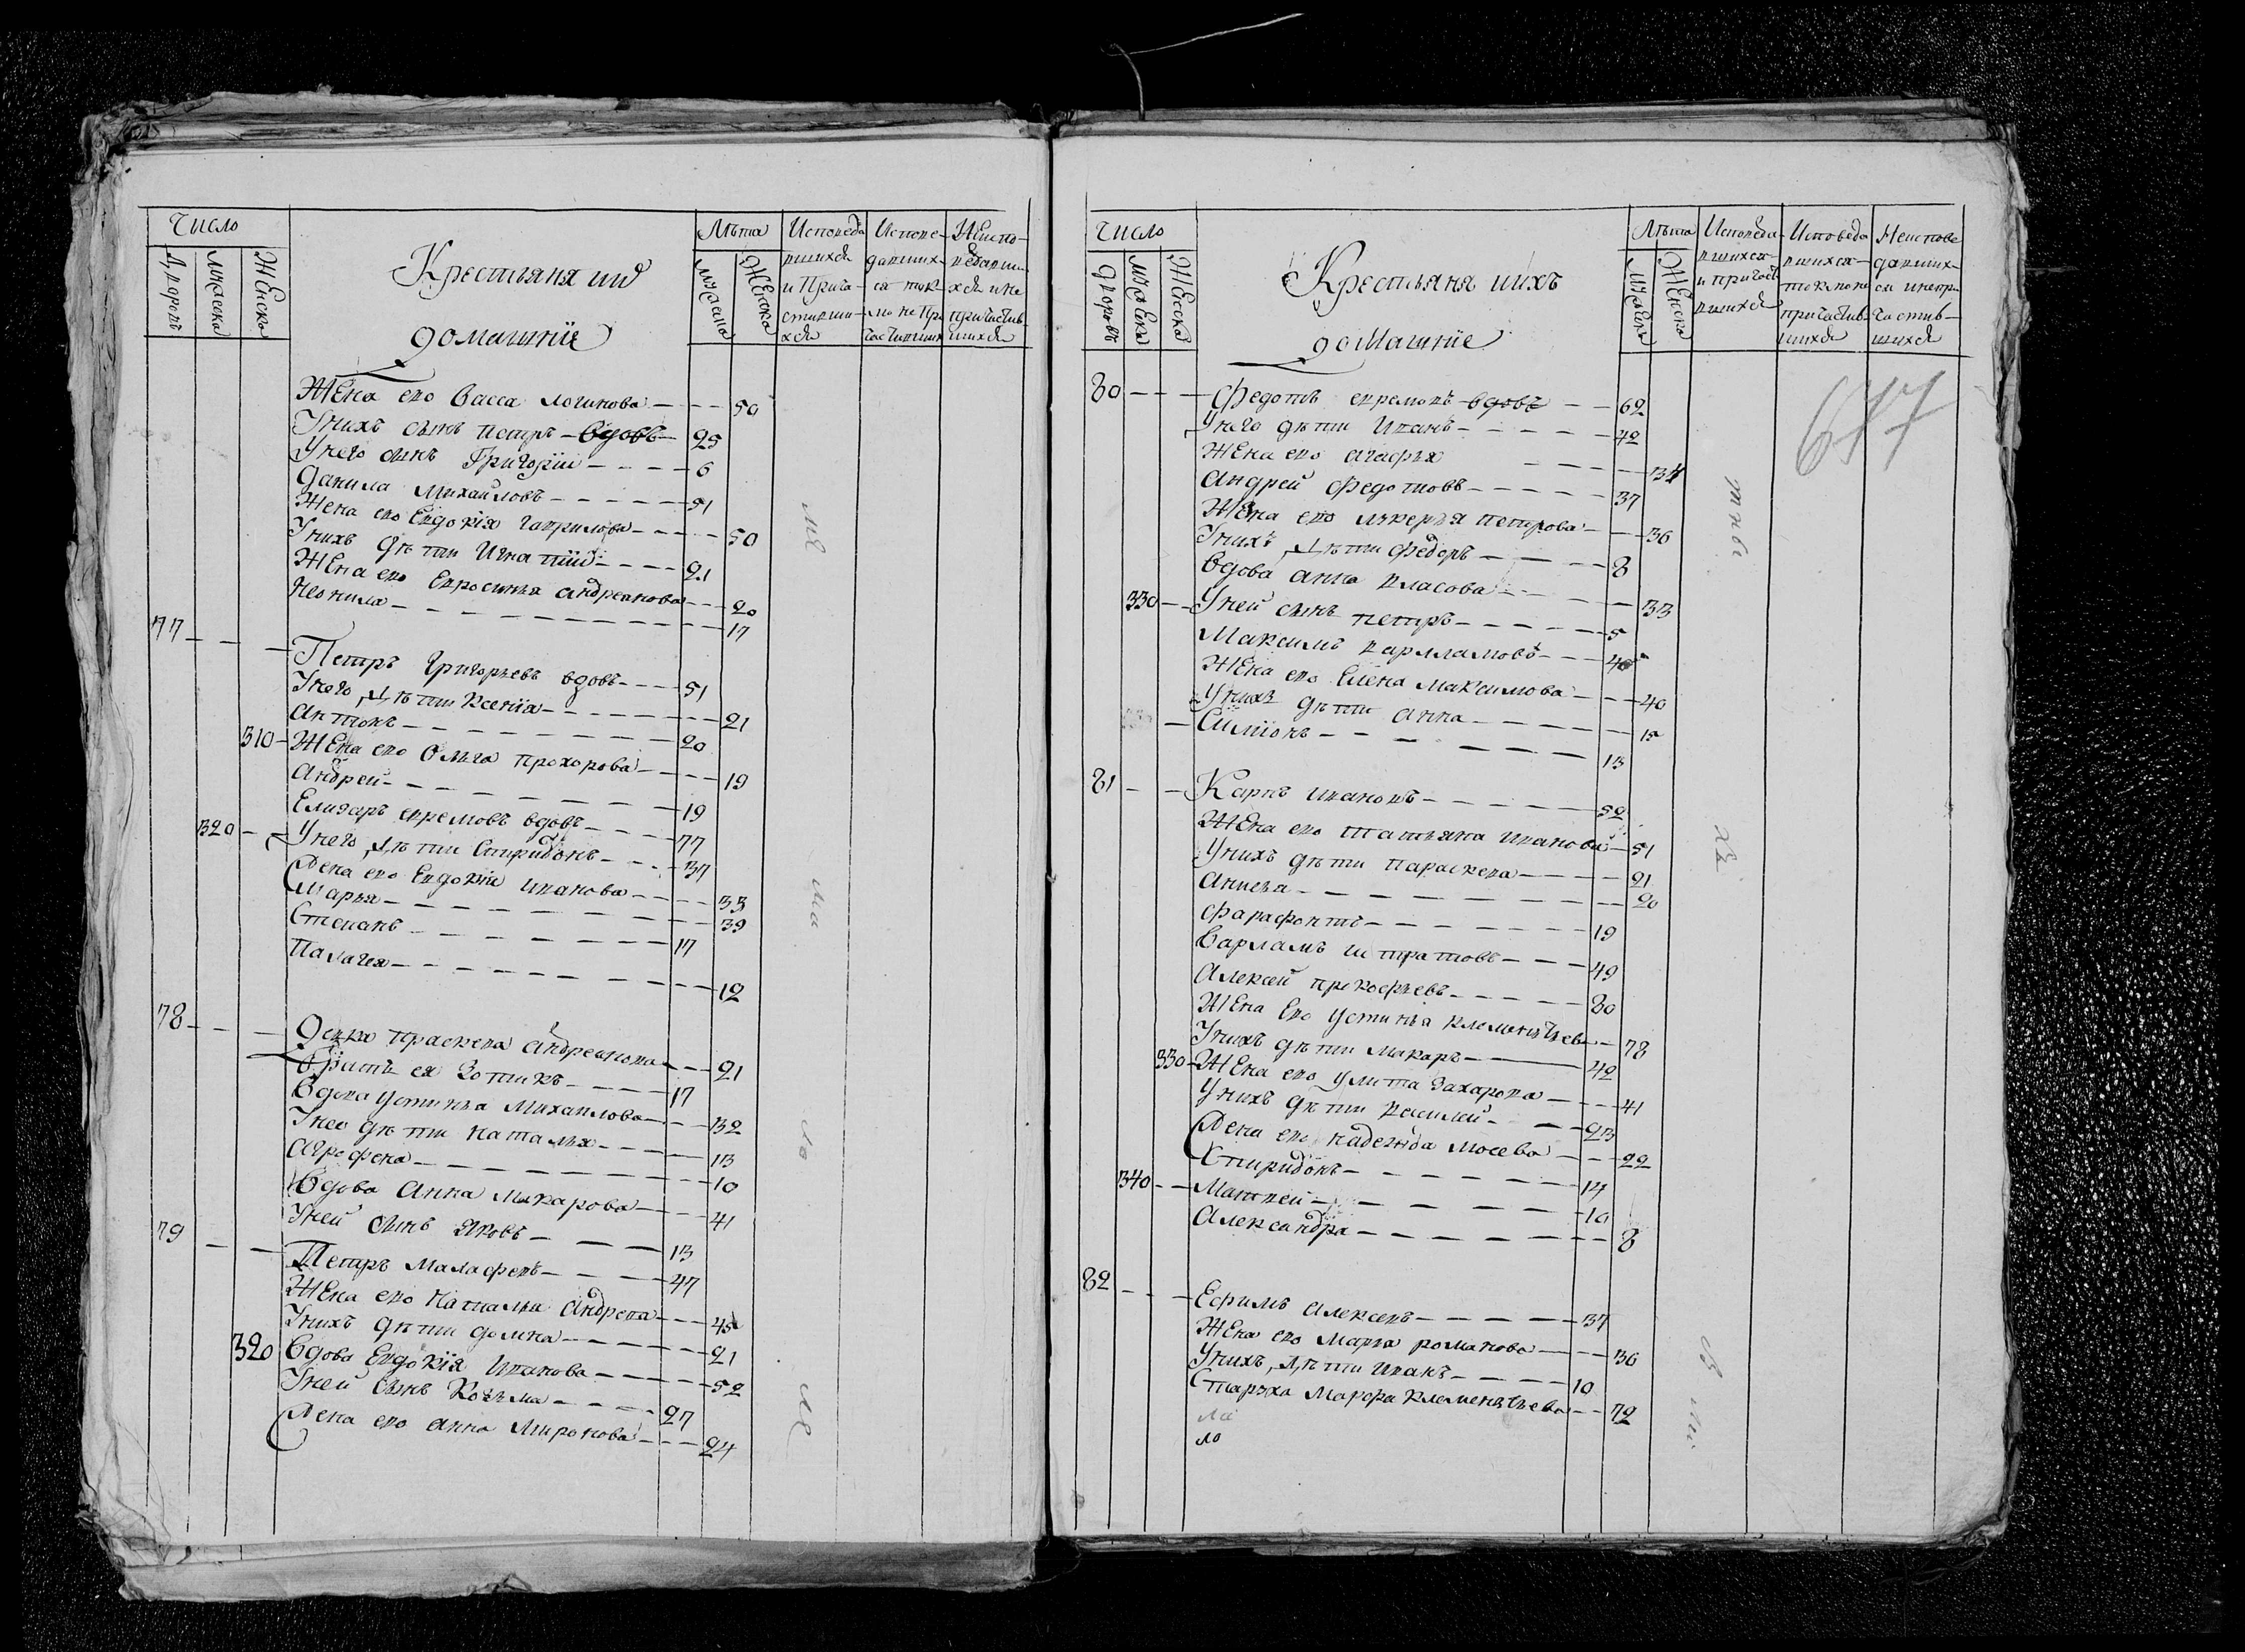 Число
Дворовъ
Мужеска
Женска
Крестьяня ихъ
домашнїе
Лѣта
Мужеска
Женска
Исповеда
вшихся
и Прича-
стивши-
хся
Испове-
давших-
ся ток-
мо не При
частивших
Неиспо-
ведавши
хся и не
причастив-
шихся
Жена ево Васса логинова 50
Унихъ сынъ петръ вдовъ 25
Унего сынъ Григорїи 6
данила михаиловъ 51
Жена ево Евдокїя гаврилова 50
Унихъ дѣти Игнатїи 21
Жена ево Евросинья андреянова 20
Неонила 17
77 Петръ Григорьевъ вдовъ 51
Унего дѣти Ксенїя 21
антонъ 20
310 Жена ево ольга прохорова 19
андреи 19
Елизаръ ефремовъ вдовъ 77
320 Унего дѣти Спиридонъ 37
Жена ево Евдокїя иванова 33
Марья 39
Степанъ 17
Палагея 12
78 Девка праскева андреянова 21
братъ ея Зотикъ 17
Вдова устинья Михаилова 32
Унео дѣти наталья 13
аграфена 10
Вдова анна макарова 41
Уней сынъ яковъ 13
79 Петръ малафевъ 47
Жена ево наталья андрева 45
Унихъ дѣти домна 21
320 Вдова Евдокїя иванова 52
Уней сынъ Козьма 27
Жена ево анна миронова 24
Число
Дворовъ
Мужеска
Женска
Крестьяня ихъ
домашнїе
Лѣта
Мужеска
Женска
Исповеда-
вшихся
и причаст
вшихся
Исповеда
вшихся
токмо не
причастив-
шихся
Неиспове
давших-
ся инепри
частив-
шихся
677
80 Федотъ ефремовъ вдовъ 62
Унего дѣти иванъ 42
Жена ево агафья 34
андрей федотовъ 37
Жена ево лукерья петрова 36
Унихъ дѣти федоръ 8
Вдова анна власова 33
330 Уней сынъ петръ 5
Максимъ варлламовъ
Жена ево Елена Максимова 40
Унихъ дѣти анна 15
Симїонъ 13
81 Карпъ ивановъ 52
Жена ево татьяна иванова 51
Унихъ дѣти параскева 21
анисья 20
фарафонтъ 19
Варламъ истратовъ 49
алексей прокофьевъ 80
Жена Ево устинья клеменьтьева 78
Унихъ дѣти макаръ 42
330 Жена ево улита захарова 41
Унихъ дѣти василей 23
Жена ево надежда мосева 22
Спиридонъ 14
340 Матвей 10
александра 8
82 Ефимъ алексевъ 37
Жена ево Марья романова 36
Унихъ дѣти иванъ 10
Старуха марфа клеменьтьева 72
ло